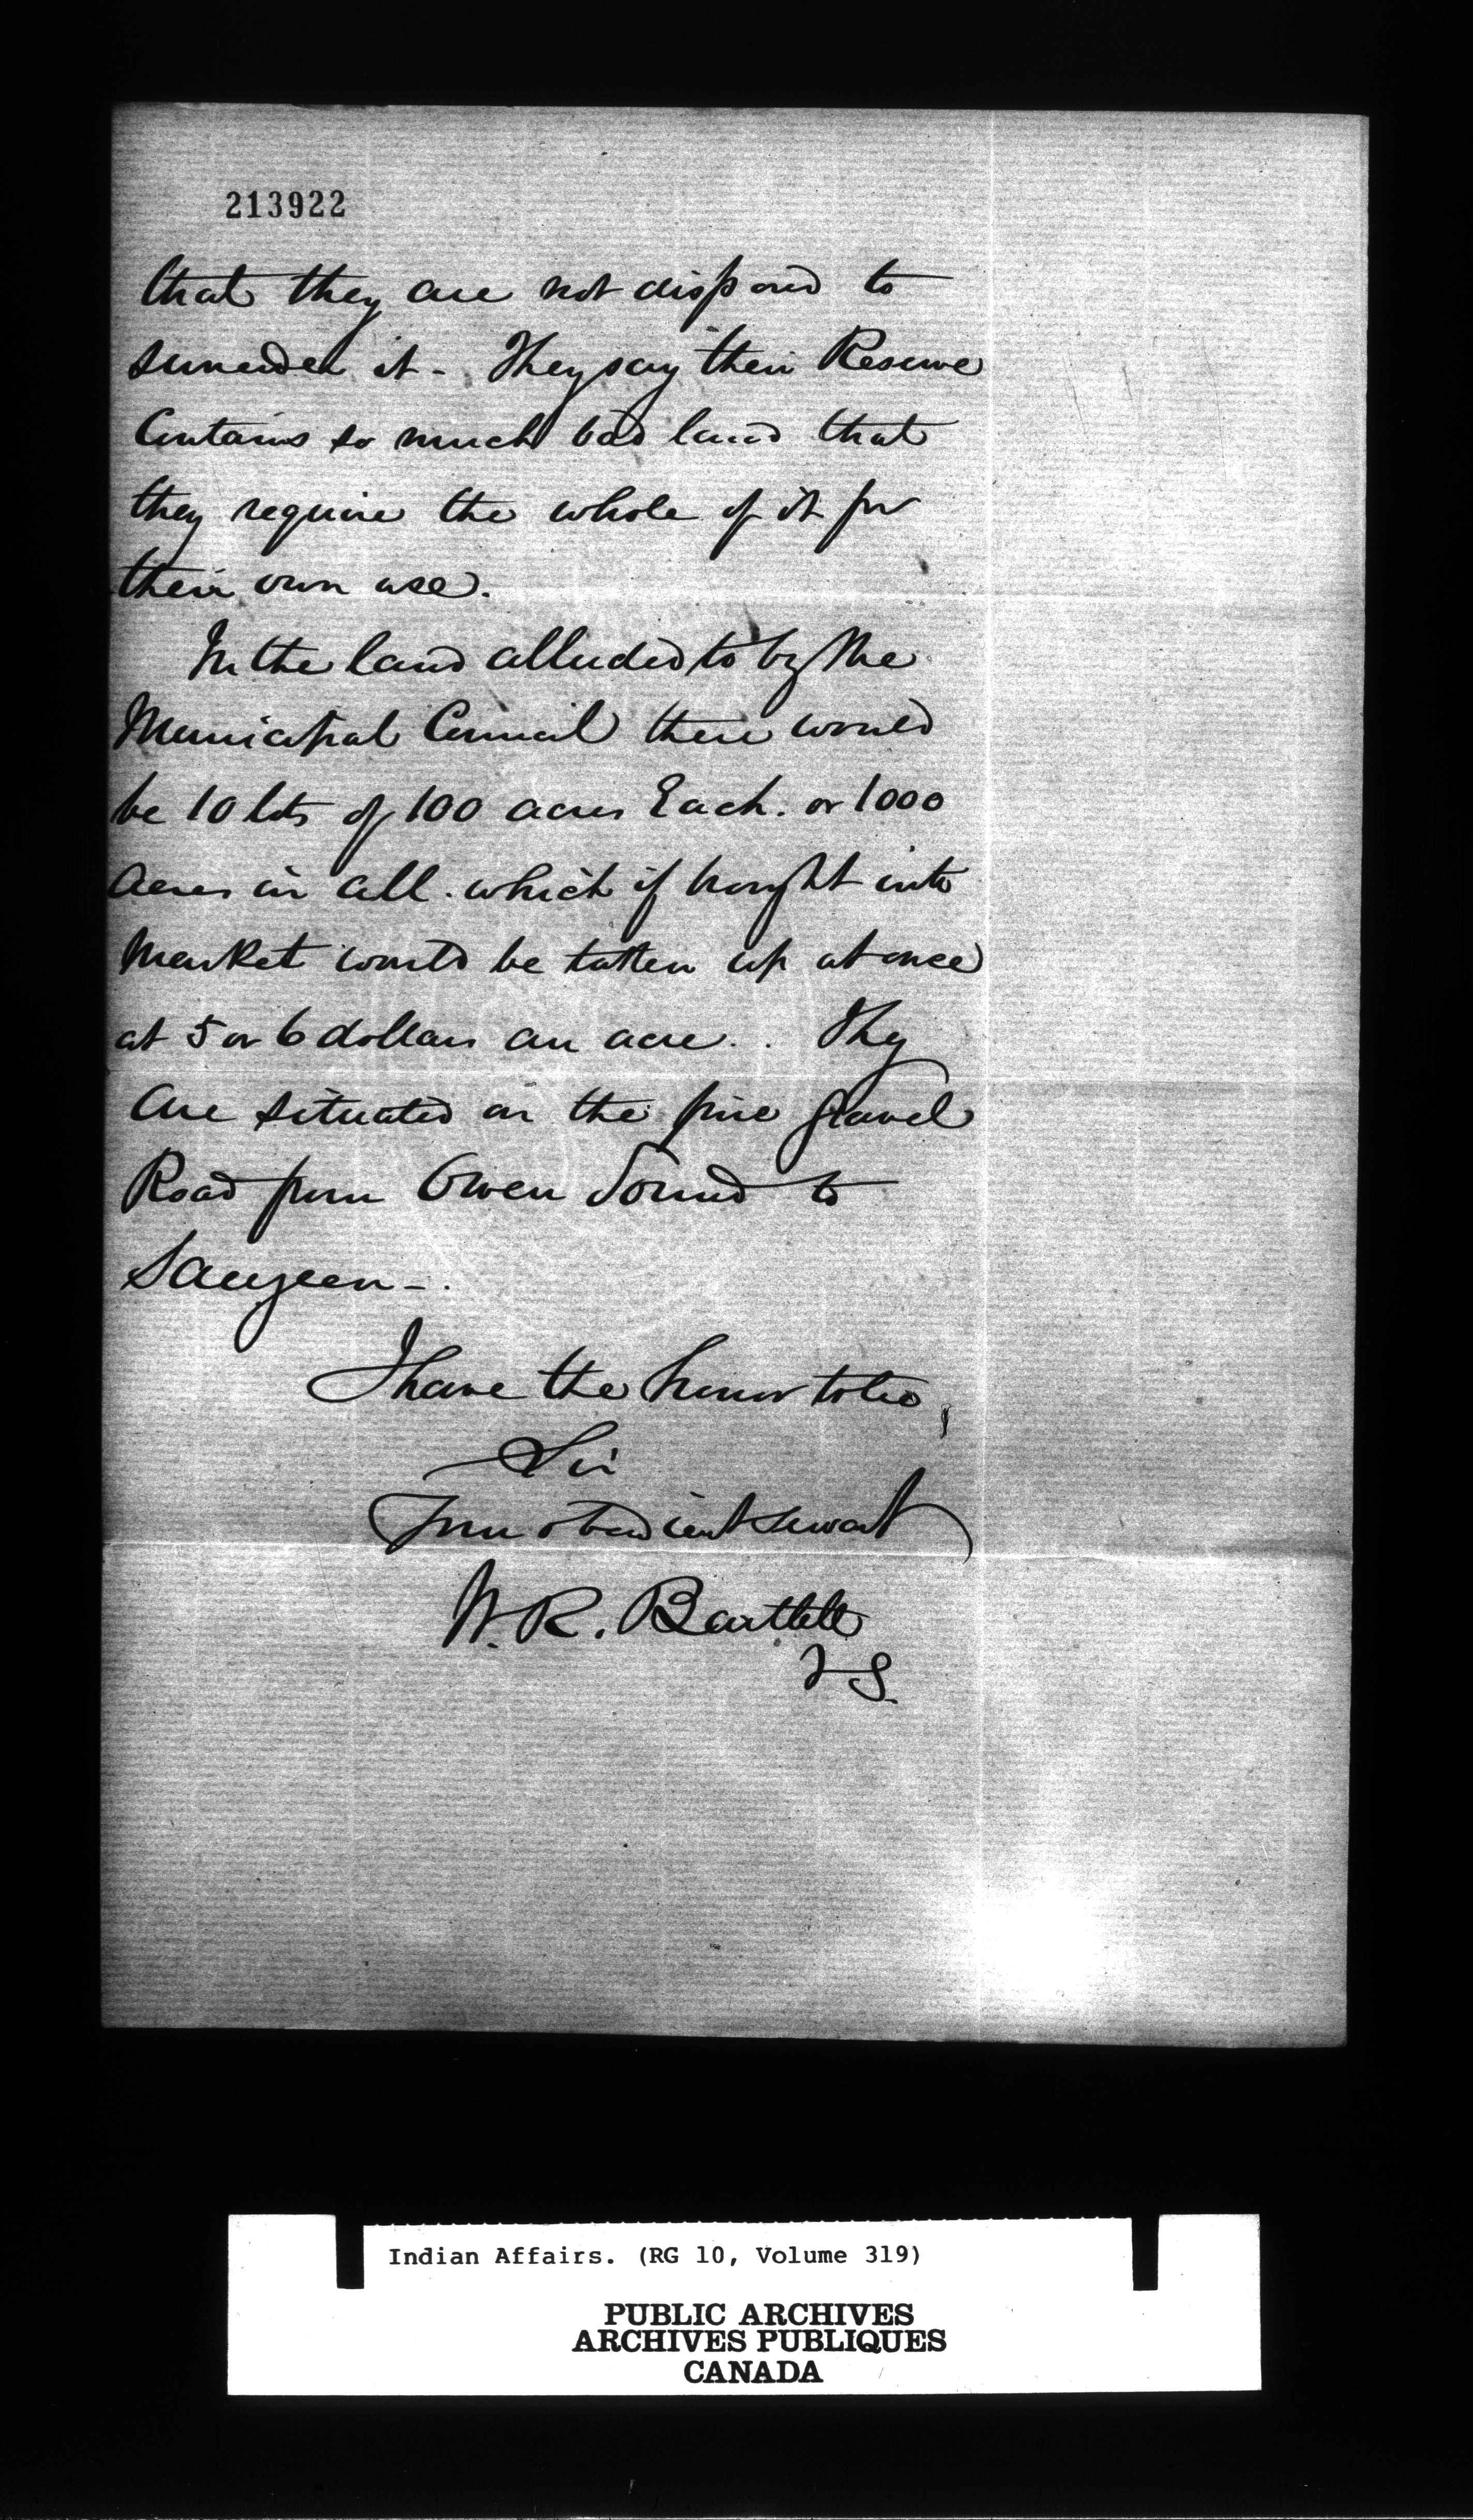 213922
that they are not disposed to
surrender it - They say their Reserve
Contains so much bad land that
they require the whole of it for
their own use.
In the land alluded to by the
Municipal Council there would
be 10 lots of 100 acres Each. or 1000
Acres in all. which if brought into
Market would be taken up at once
at 5 or 6 dollars an acre. . They
are situated on the fine Gravel
Road from Owen Sound to
Saugeen - .
I have the honor to be,
Sir
Your obedient servant
W. R. Bartlett
I S.
Indian Affairs. (RG 10, Volume 319)
PUBLIC ARCHIVES
ARCHIVES PUBLIQUES
CANADA